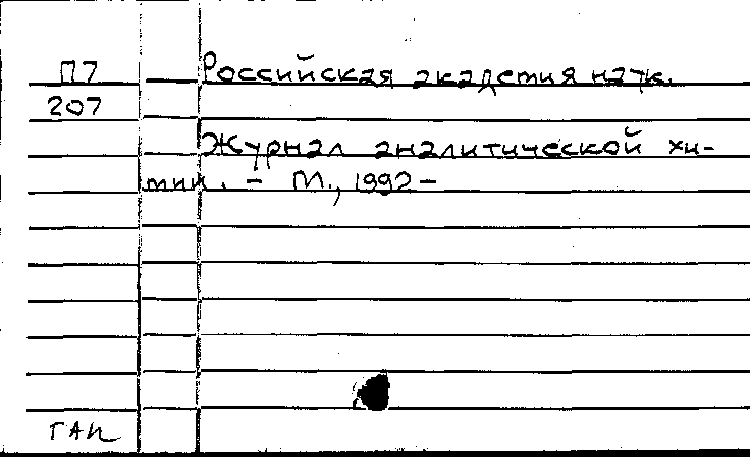 П7 Российская академия наук.
207
Журнал аналитической хи-
мии. - М., 1992-